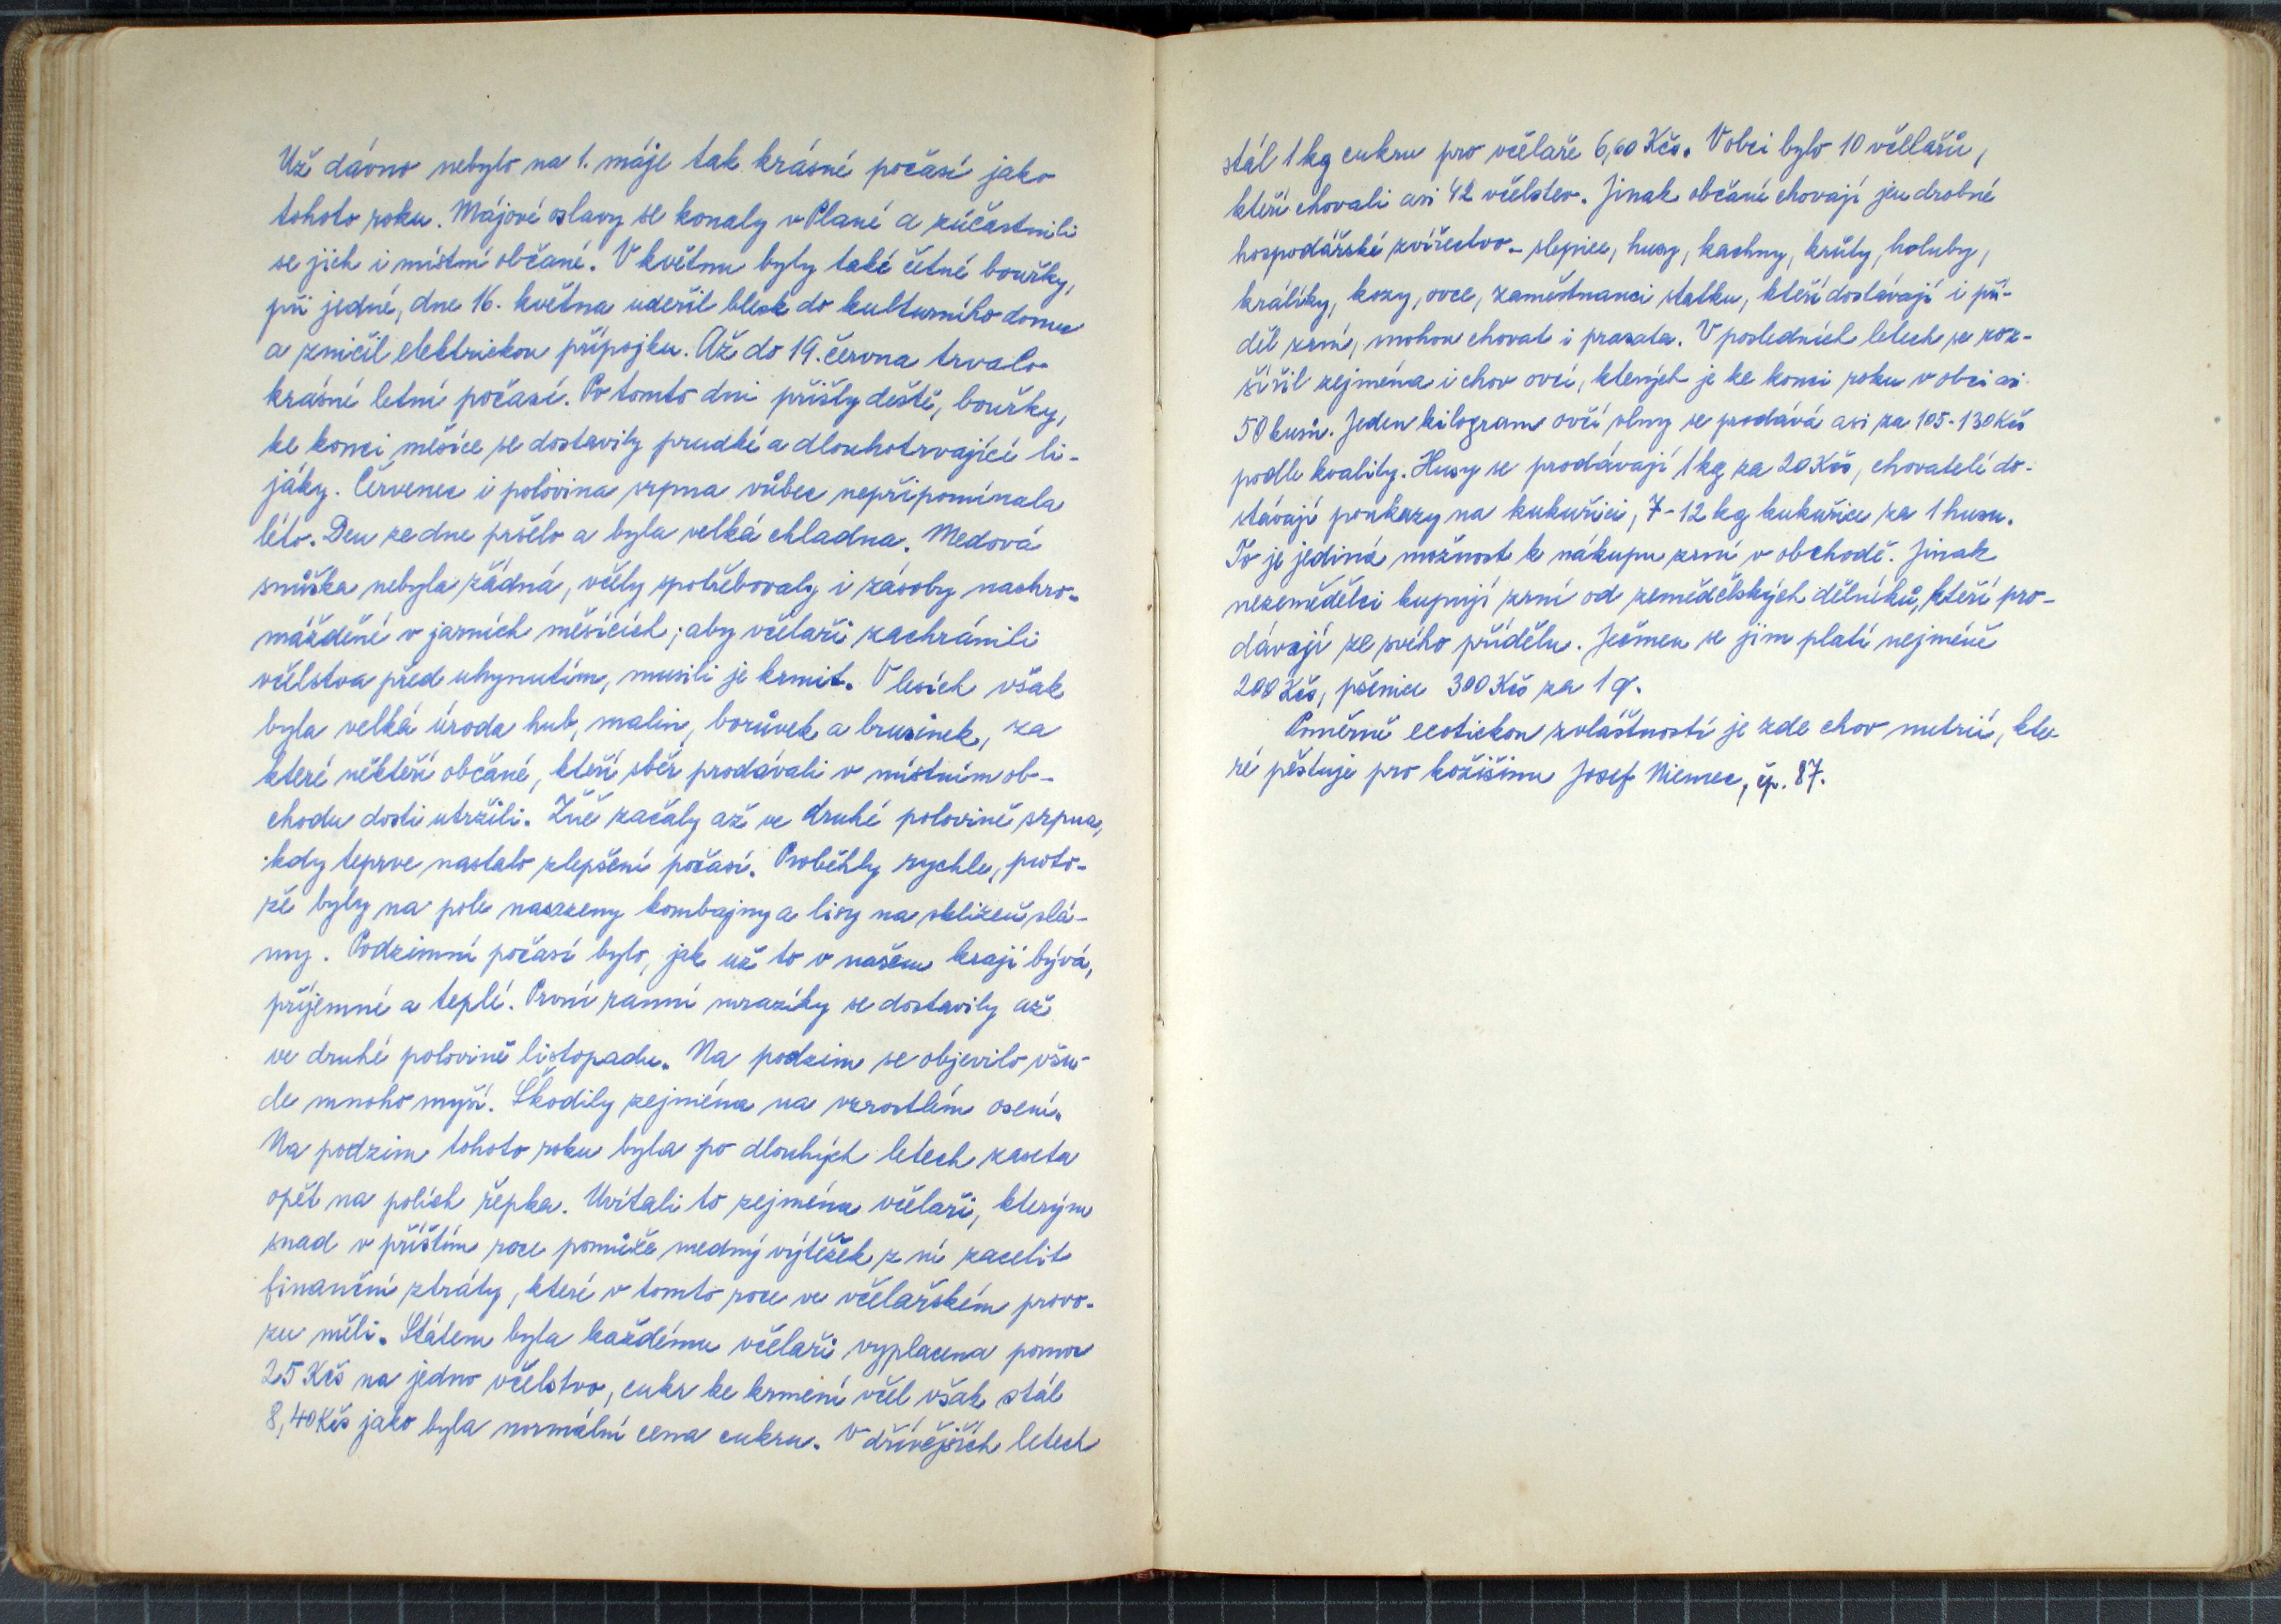 Už dávno nebylo na 1. máje tak krásné počasí jako
tohoto roku. Májové oslavy se konaly v Plané a zúčastnili
se jich i místní občané. V květnu byly také četné bouřky,
při jedné, dne 16. května udeřil blesk do kulturního domu
a zničil elektrickou přípojku. Až do 19. června trvalo
krásné letní počasí. Po tomto dni přišly deště, bouřky,
ke konci měsíce se dostavily prudké a dlouhotrvající li-
jáky. Červenec i polovina srpna vůbec nepřipomínala
léto. Den ze dne pršelo a byla velká chladna. Medová
snůška nebyla žádná, včely spotřebovaly i zásoby nashro-
máždění v jarních měsících; aby včelaři zachránili
včelstva před uhynutím, musili je krmit. V lesích však
byla velká úroda hub, malin, borůvek a brusinek, za
které někteří občané, kteří sběr prodávali v místním ob-
chodu dosti utržili. Žně začaly až ve druhé polovině srpna,
kdy teprve nastalo zlepšení počasí. Proběhly rychle, proto-
že byly na pole nasazeny kombajny a lisy na sklizeň slá-
my. Podzimní počasí bylo, jak už to v našem kraji bývá,
příjemné a teplé. První ranní mrazíky se dostavily až
ve druhé polovině listopadu. Na podzim se objevilo všu-
de mnoho myší. Škodily zejména na vzrostlém osení.
Na podzim tohoto roku byla po dlouhých letech zaseta
opět na polích řepka. Uvítali to zejména včelaři, kterým
snad v příštím roce pomůže medný výtěžek z ní zacelit
finanční ztráty, které v tomto roce ve včelařském provo-
zu měli. Státem byla každému včelaři vyplacena pomoc
25 Kčs na jedno včelstvo, cukr ke krmení včel však stál
8,40 Kčs jako byla normální cena cukru. V dřívějších letech
stál 1 kg cukru pro včelaře 6,60 Kčs. V obci bylo 10 včelařů,
kteří chovali asi 42 včelstev. Jinak občané chovají jen drobné
hospodářské zvířectvo - slepice, husy, kachny, krůty, holuby,
králíky, kozy, ovce, zaměstnanci statku, kteří dostávají i pří-
děl zrní, mohou chovat i prasata. V posledních letech se roz-
šířil zejména i chov ovcí, kterých je ke konci roku v obci asi
50 kusů. Jeden kilogram ovčí vlny se prodává asi za 105-130 Kčs
podle kvality. Husy se prodávají 1 kg za 20 Kčs, chovatelé do-
stávají poukazy na kukuřici, 7-12 kg kukuřice za 1 husu.
To je jediná možnost k nákupu zrní v obchodě. Jinak
nezemědělci kupují zrní od zemědělských dělníků, kteří pro-
dávají ze svého přídělu. Ječmen se jim platí nejméně
200 Kčs, pšenice 300 Kčs za 1 q.
Poměrně exotickou zvláštností je zde chov nutrií, kte-
ré pěstuje pro kožišinu Josef Niemec, čp. 87.